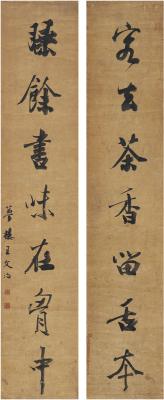 客去茶香留舌本
睡餘書味在胷中
夢樓王文治